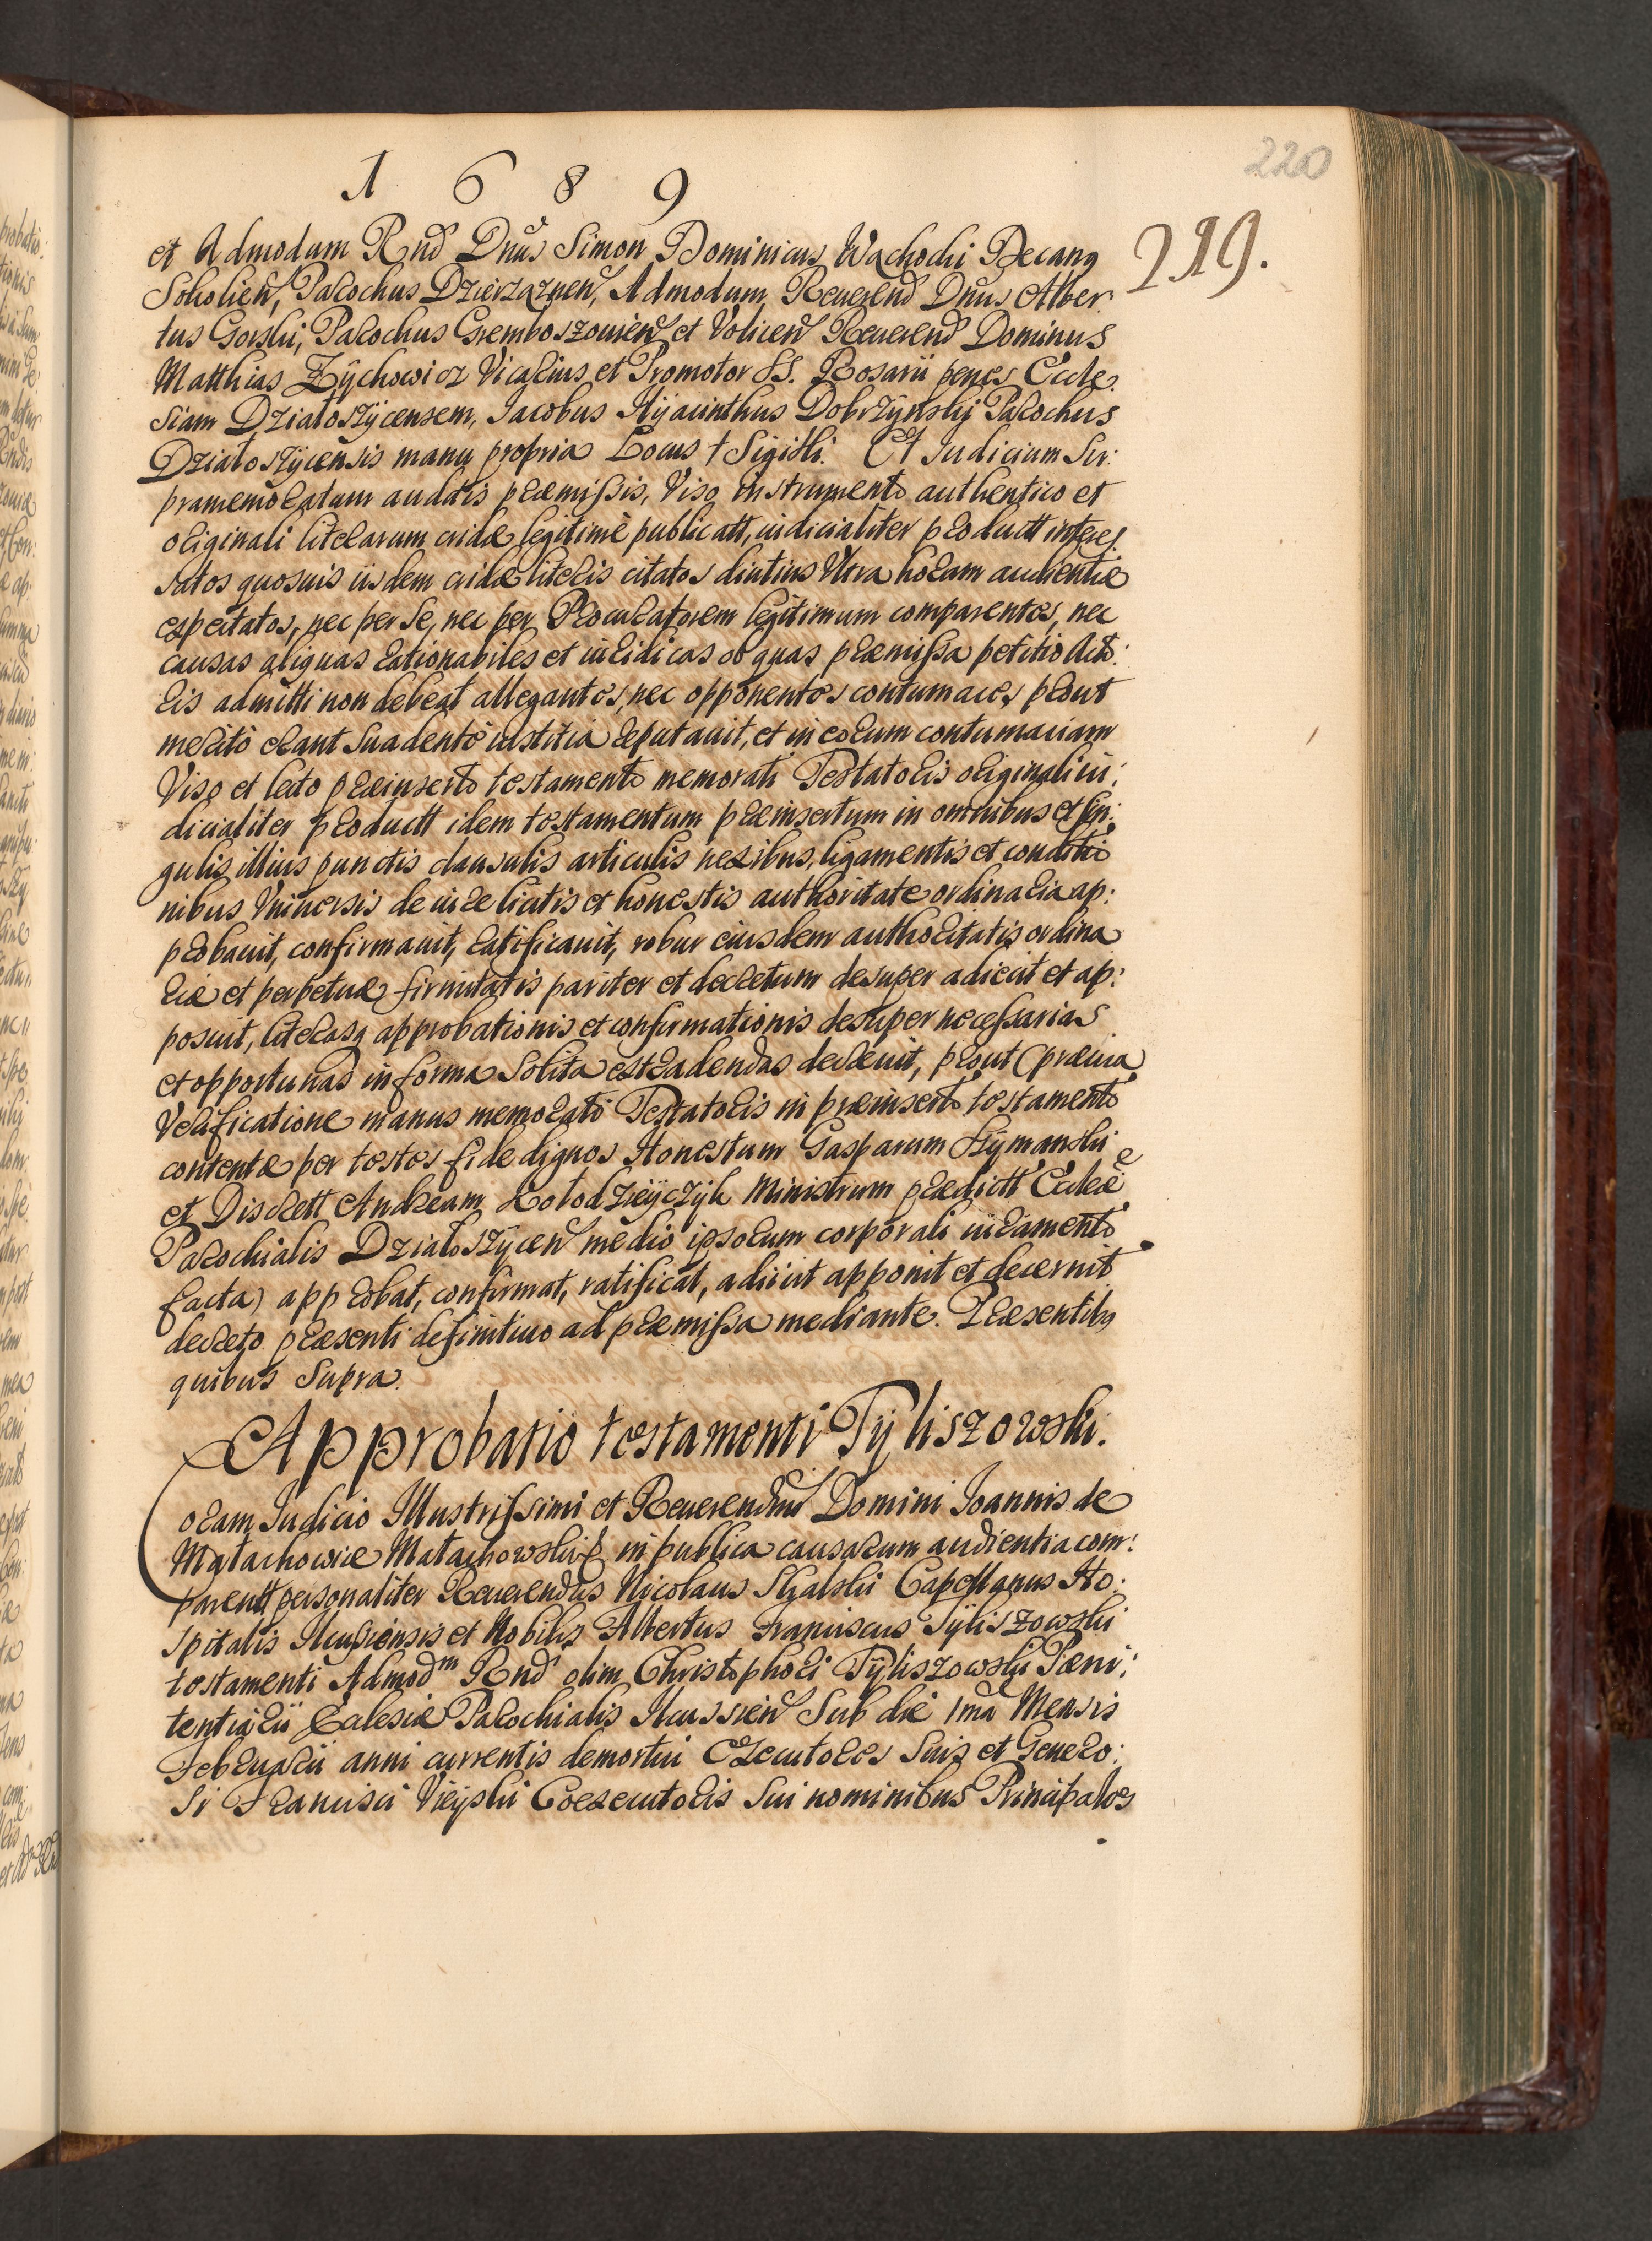 220
1 6 8 9
219.
et Admodum Rnd Dnus Simon Dominicus Wachocki Decang
Sokolien, Parochus Dzierzaznen, Admodum Reuerend Dnus Alber:
tus Gorski, Parochus Gremboszouien et Volicen Reuerend Dominus
Matthias Zÿchowicz Vicarius et Promotor SS. Rosarii penes Eccle:
siam Dzialoszÿcensem, Jacobus Hÿacinthus Dobrzÿnskÿ Parochus
Dzialoszÿcensis manu propria Locus † Sigilli. Et Judicium Su:
pramemoratum auditis præmissis, Viso instrumento authentico et
originali literarum cridæ legitimè publicatt, iudicialiter productt interes:
satos quosuis iisdem cridæ literis citatos diutius Vltra horam audientiæ
expectatos, nec per Se, nec per Procuratorem legitimum comparentes, nec
causas aliquas rationabiles et iuridicas ob quas præmissa petitio Acto:
ris admitti non debeat allegantes, nec opponentes contumaces prout
meritò erant Suadente iustitia reputauit, et in eorum contumaciam
Viso et lecto præinserto testamento memorati Testatoris originali iu:
dicialiter productt idem testamentum præinsertum in omnibus et sin:
gulis illius punctis clausulis articulis nexibus, ligamentis et conditio
nibus Vniuersis de iure licitis et honestis authoritate ordinaria ap:
probauit, confirmauit, ratificauit, robur eiusdem authoritatis ordina
riæ et perpetuæ firmitatis pariter et decretum desuper adiecit et ap:
posuit, literasq approbationis et confirmationis desuper necessarias
et opportunas in forma Solita extradendas decreuit, prout (præuia
Verificatione manus memorati Testatoris in præinserto testamento
contentæ per testes fide dignos Honestum Gasparum Szÿmanski
et Discrett Andream Kolodzieÿczÿk Ministrum prædictt Eccleæ
Parochialis Dzialoszÿcen medio ipsorum corporali iuramento
facta) approbat, confirmat, ratificat, adiicit apponit et decernit
decreto præsenti definitiuo ad præmissa mediante. Præsentibq
quibus Supra.
Approbatio testamenti Tÿliszowski.
Coram Judicio Illustrissimi et Reuerendmi Domini Joannis de
Malachowice Malachowski in publica causarum audientia com:
parentt personaliter Reuerendus Nicolaus Skalski Capellanus Ho:
spitalis Ilcusiensis et Nobilis Albertus Franciscus Tÿliszowski
testamenti Admodm Rnd olim Christophori Tÿliszowskÿ Pæni:
tentiarii Ecclesiæ Parochialis Ilcussien Sub die 1ma Mensis
Februarii anni currentis demortui Executores Suis et Genero:
si Francisci Vieÿski Coexecutoris Sui nominibus Principales